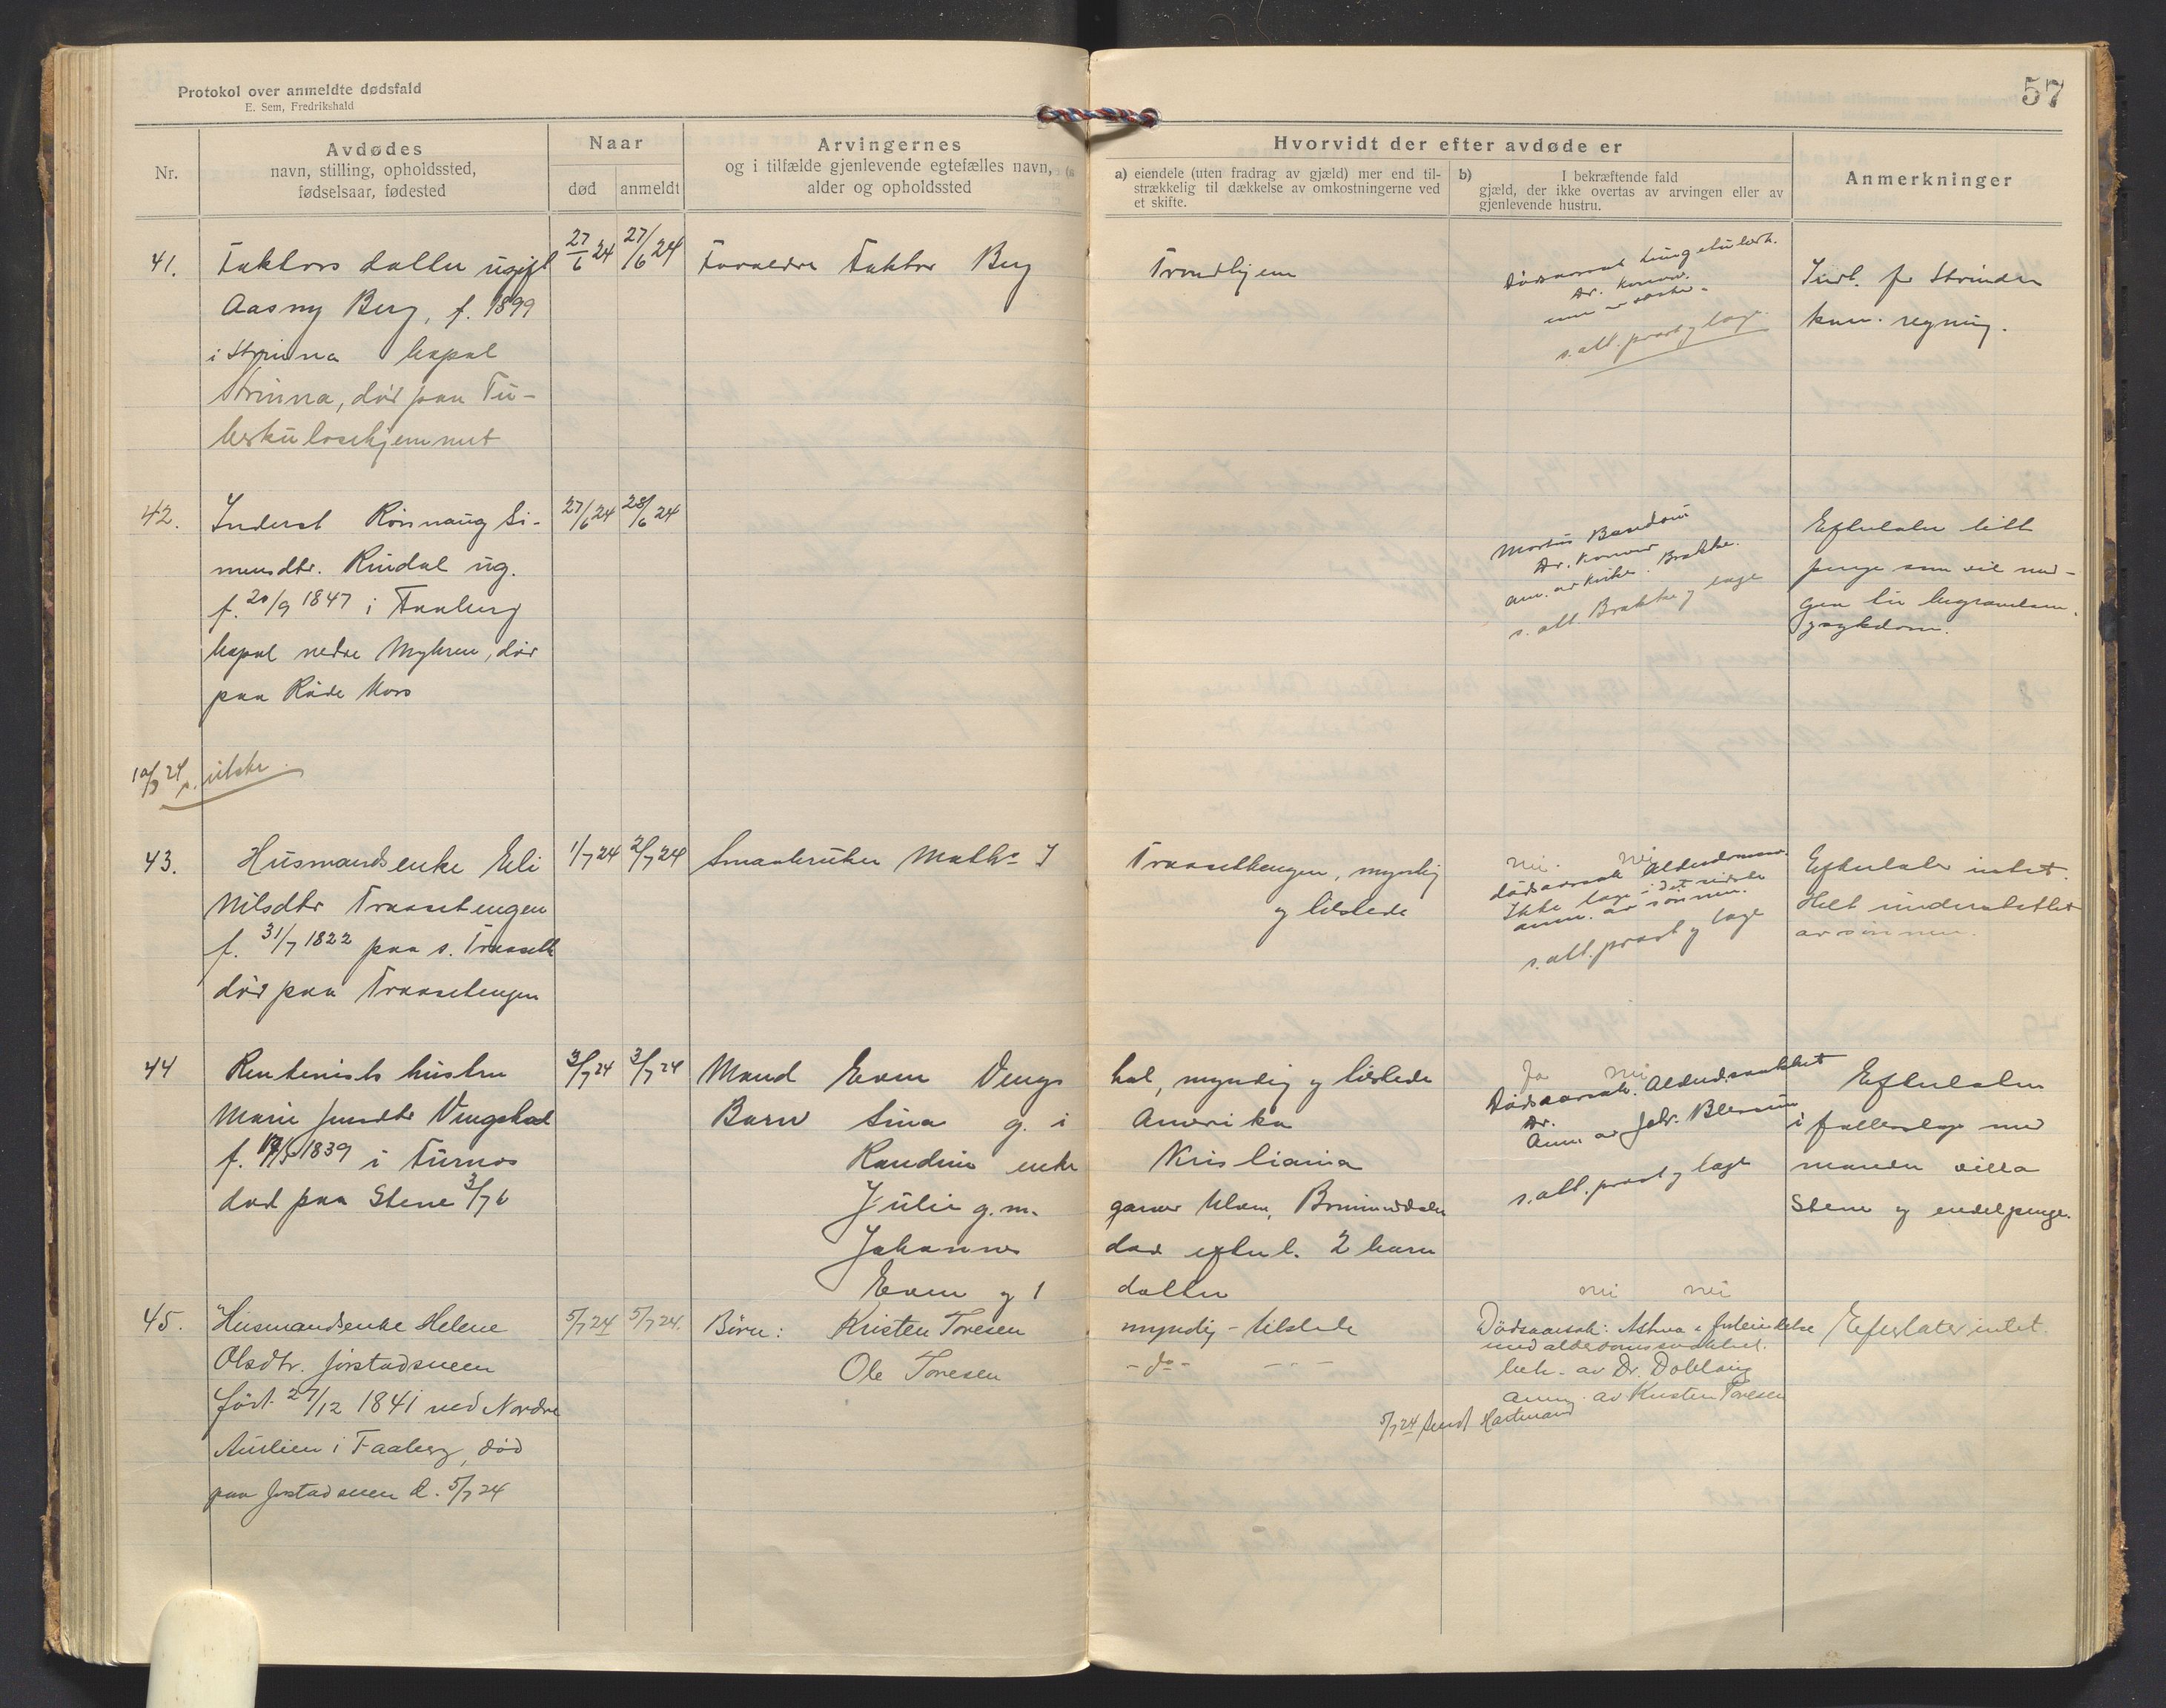 Protokol over anmeldte dødsfald
E. Sem, Fredrikshald
57
Nr.
Avdødes
navn, stilling, opholdssted,
fødselsaar, fødested
Naar
død
anmeldt
Arvingernes
og i tilfælde gjenlevende egtefælles navn,
alder og opholdssted
Hvorvidt der efter avdøde er
a) eiendele (uten fradrag av gjæld) mer end til-
strækkelig til dækkelse av omkostningerne ved
et skifte.
b) I bekræftende fald
gjæld, der ikke overtas av arvingen eller av
gjenlevende hustru.
Anmerkninger
41.
Faktors datter ugift
Aasny Berg, f. 1899
i Strinna bopal
Strinna, död paa Tu-
berkulosehjemmet
27/6 24
27/6 24
Foraeldre Faktor Berg
Trondhjem
Dødsaarsak Lungetuberk.
Dr.
s. att. prost og lage
Indl. for Strinden
kom. regning.
42.
Inderst Rönnaug Si-
mensdtr. Rindal ug.
f. 20/9 1847 i Faaberg
bopal nedre Myhren, död
paa Röde Kors
27/6 24
28/6 24
Dr.
anm. av Brakke.
s. att Brakke og lage
Efterlater litt
penge som vil med-
gaa til begravelsen
og sykdom.
10/9 24 p.
43.
Husmandsenke Eli
Nilsdtr Traasetengen
f. 31/7 1822 paa s. Traaseth
död paa Traasetengen
1/7 24
2/7 24
Smaabruker Maths J
Traasethengen, myndig
og tilstede
nei. nei
dödsaarsak Alderdomssv.
Ikke lage i det sidste
anm. av sönnen.
s. att. prost og lage
Efterlater intet.
Helt understöttet
av sönnen.
44
Rentenists hustru
Marie Jensdtr Vingshal
f. 1839 i Furnes
död paa Stene 3/7 6
3/7 24
3/7 24
Mand Even Vengs
hal, myndig og tilstede
Barn Sina g. i
Amerika
Randine enke
Kristiania
Julie g. m.
garver Brummunddalen
Johannes
död efterl. 2 barn
Even og 1
datter
Ja nei
Dödsaarsak. Alderdsvakhet
Dr.
Anm. av Johs. Blessum
s. att. prost og lage
Efterlater
i fælleslage med
manden villa
Stene og endel penge.
45.
Husmandsenke Helene
Olsdtr. Jörstadsveen
född. 27/12 1841 ved Nordre
Aulien i Faaberg, död
paa Jörstadsveen d. 5/7 24
5/7 24
5/7 24.
Börn: Kristen Toresen
Ole Toresen
myndig - tilstede
- do - - " -
nei nei
Dödsaarsak: Astma i forbindelse
med alderdomssvakhet.
beh. av Dr. Dobloug
anm. av Kristen Toresen
5/7 24 sendt Hartmand
Efterlater intet.